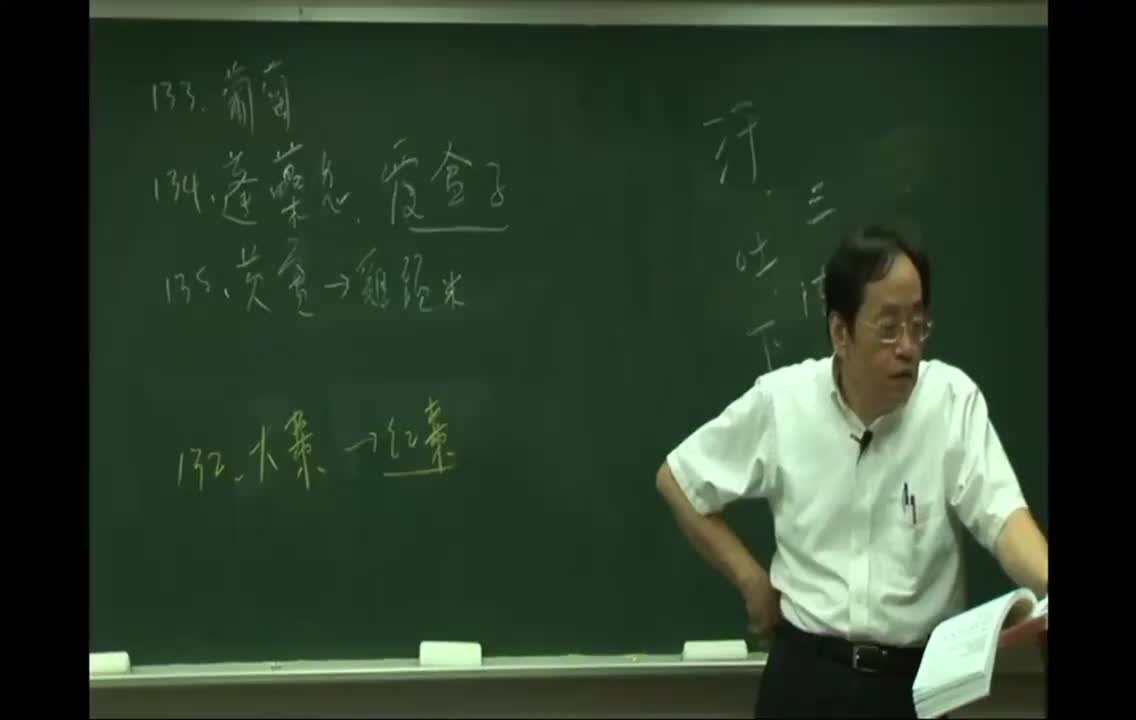 133. 葡萄
134. 蓬蘽 覆盆子
135. 芡實→雞頭米
132. 大棗→红棗
汗.
吐.
下
三
法